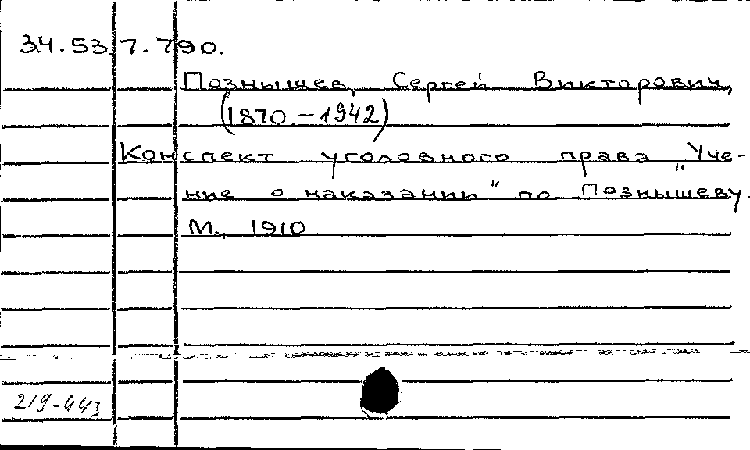 34.53.7.790.
Познышев, Сергей Викторович,
(1870-1942)
Конспект уголовного права „Уче-
ние о наказании" по Познышеву.
М., 1910
219-443